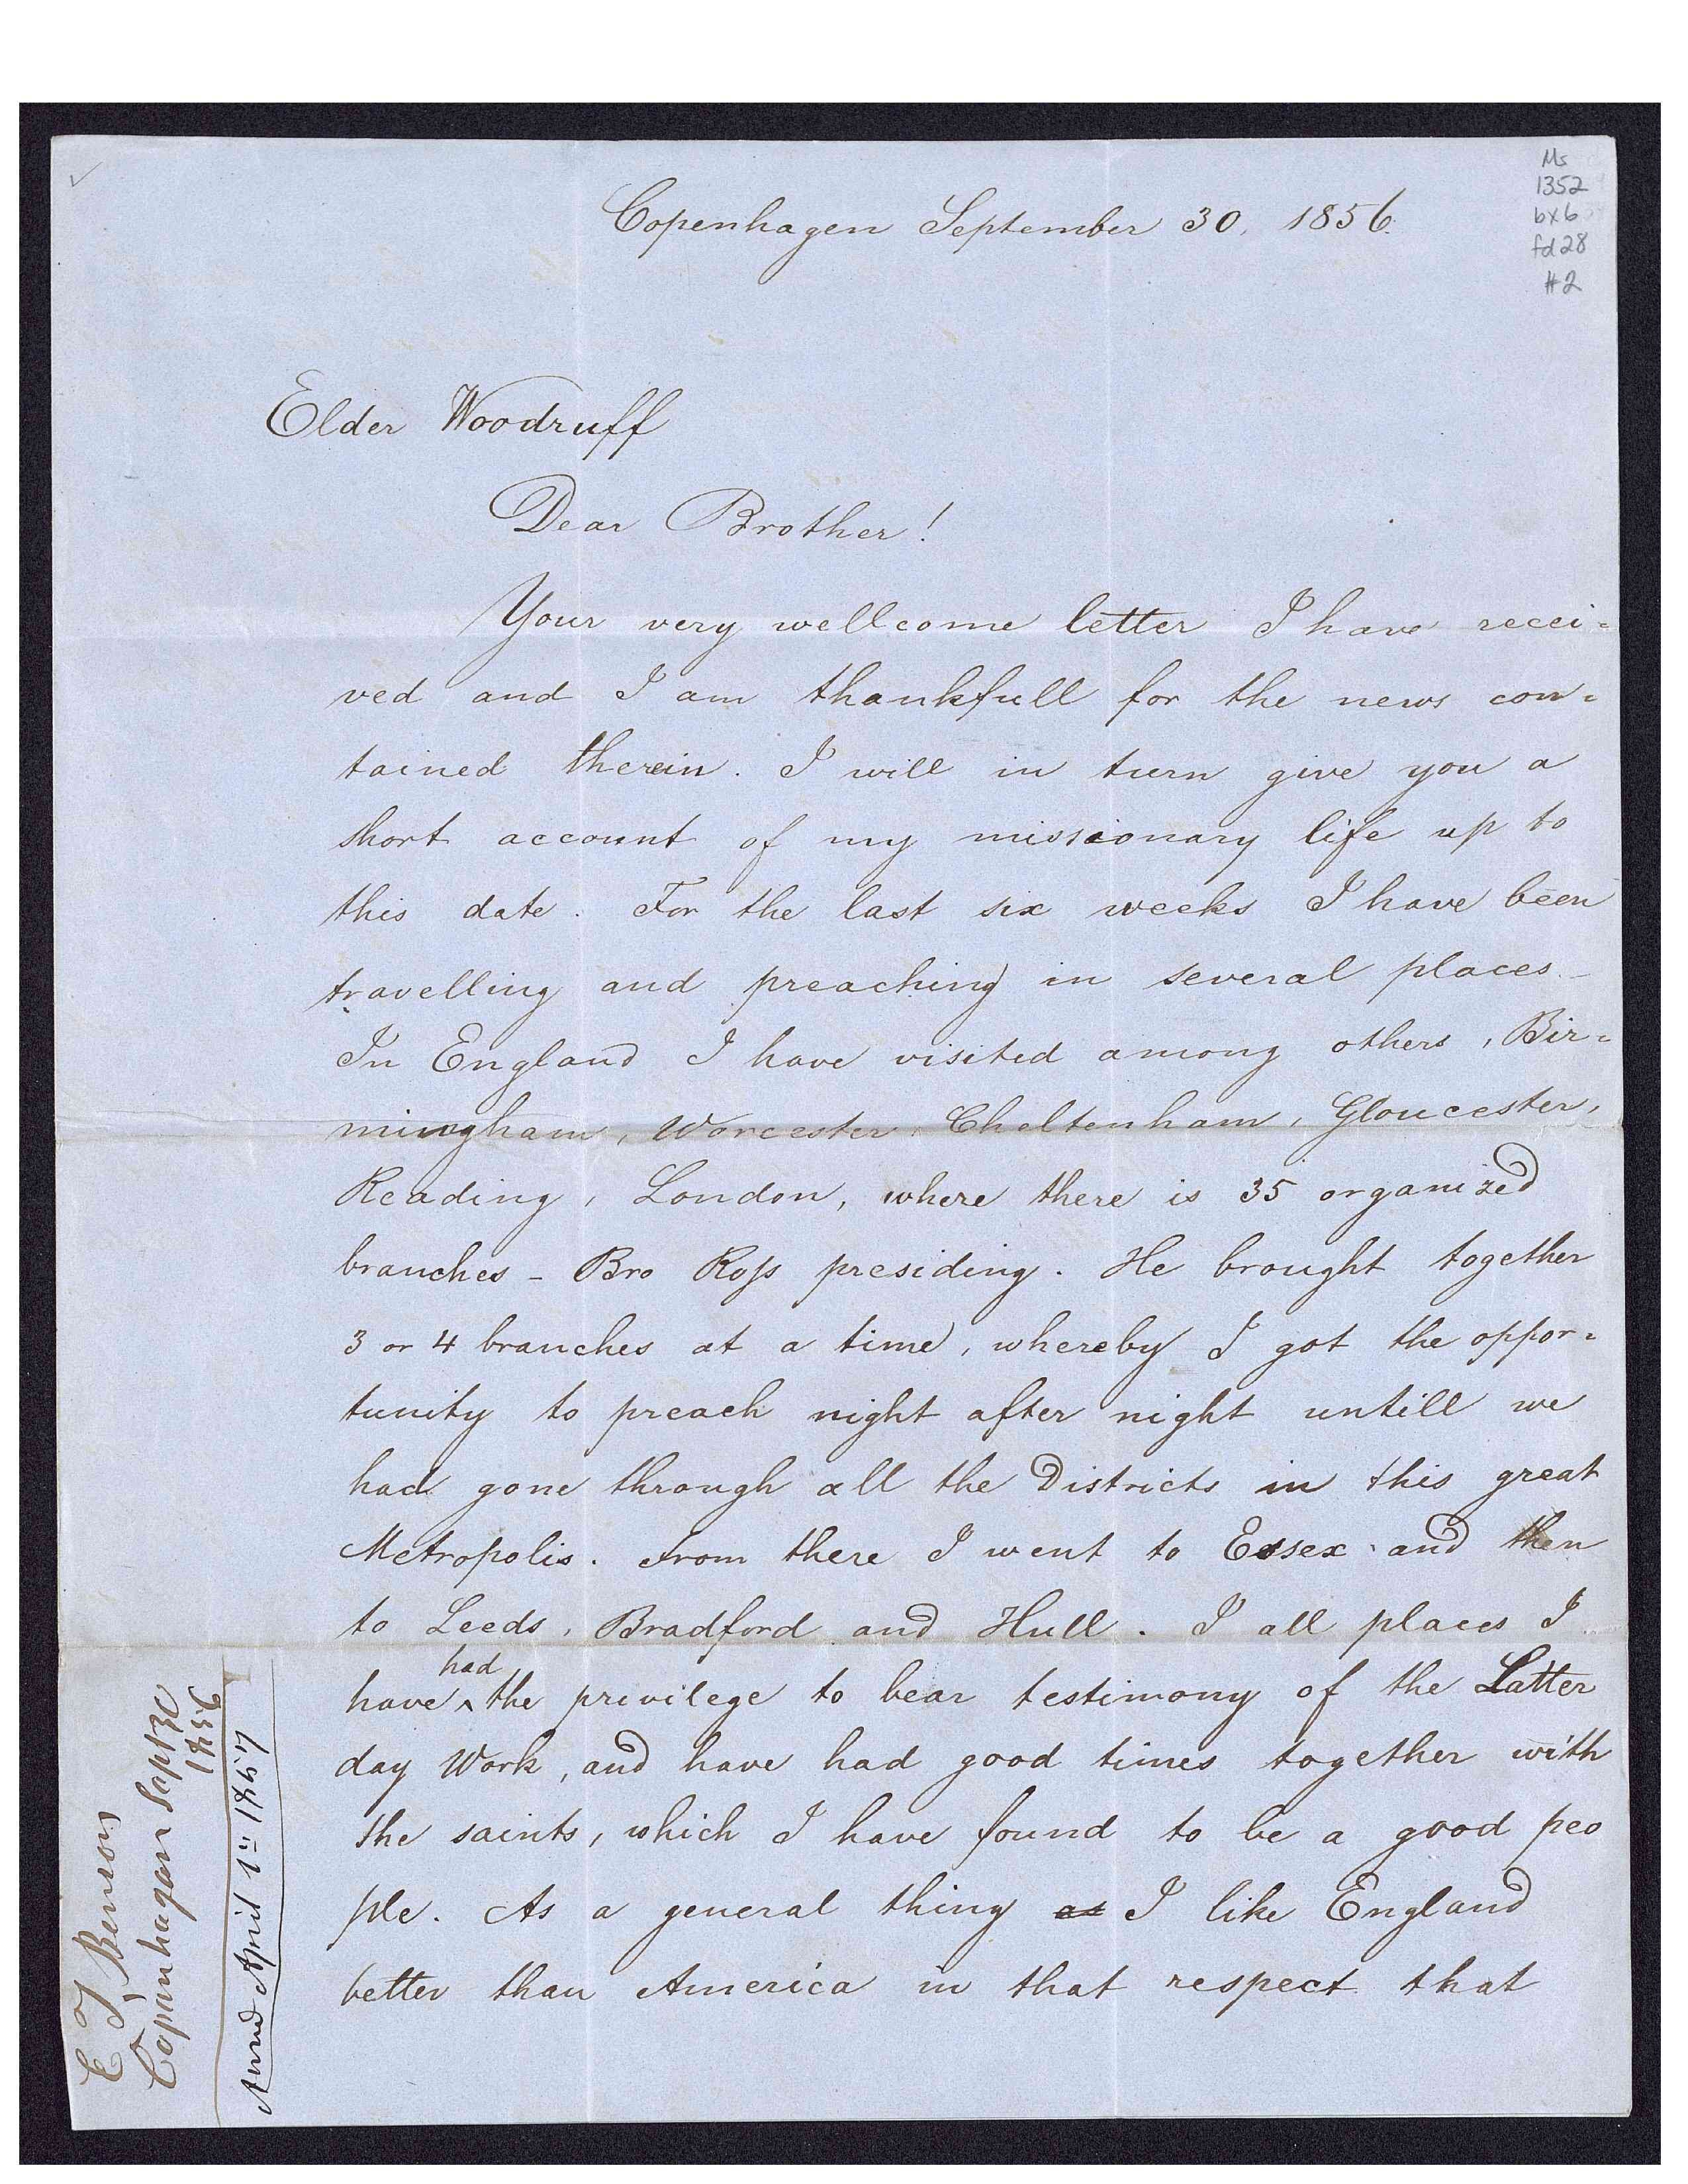 Ms
1352
bx6
fd28
#2
Copenhagen September 30, 1856.
Elder Woodruff
Dear Brother!
Your very wellcome letter I have recei=
ved and I am thankfull for the news con=
tained therein. I will in turn give you a
short account of my missionary life up to
this date. For the last six weeks I have been
travelling and preaching in several places.
In England I have visited among others, Bir=
mingham, Worcester, Cheltenham, Gloucester,
Reading, London, where there is 35 organized
branches - Bro Ross presiding. He brought together
3 or 4 branches at a time, whereby I got the oppor=
tunity to preach night after night untill we
had gone through all the Districts in this great
Metropolis. From there I went to Essex and then
to Leeds, Bradford and Hull. I all places I
have ^had the privilege to bear testimony of the Latter
day Work, and have had good times together with
the saints, which I have found to be a good peo
ple. As a general thing as I like England
better than America in that respect that
E T, Benson
Copenhagen Sept 30
1856
Answd April 1" 1857